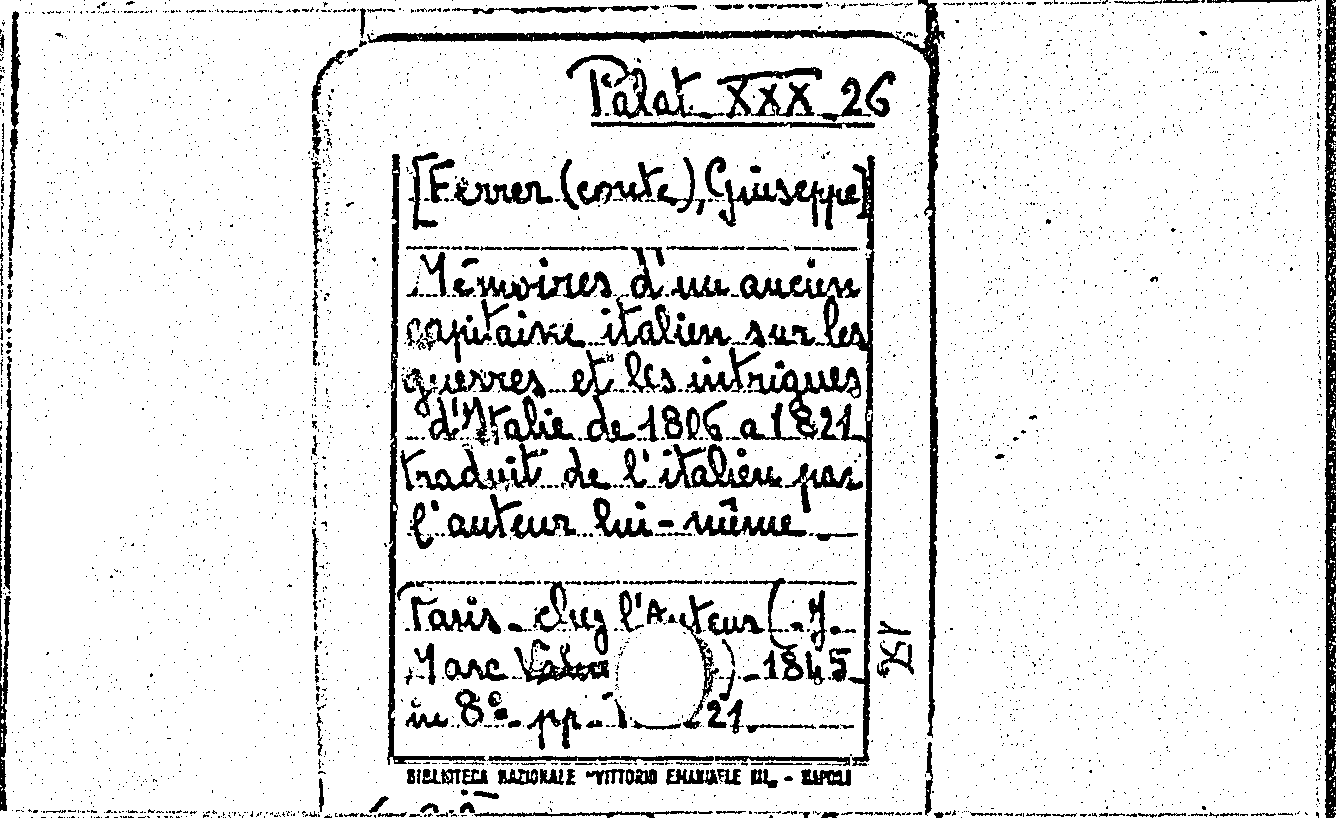 Palat. XXX. 26
[Ferrer (conte), Giuseppe]
Mémoires d'un ancien
capitaine italien sur les
guerres et les intrigues
d'Italie de 1806 a 1821
traduit de l'italien par
l'auteur lui-même
Paris. chez l'Auteur (.J.
Marc ) 1845.
in 8º. pp. 21.
BIBLIOTECA NAZIONALE "VITTORIO EMANUELE III" - NAPOLI